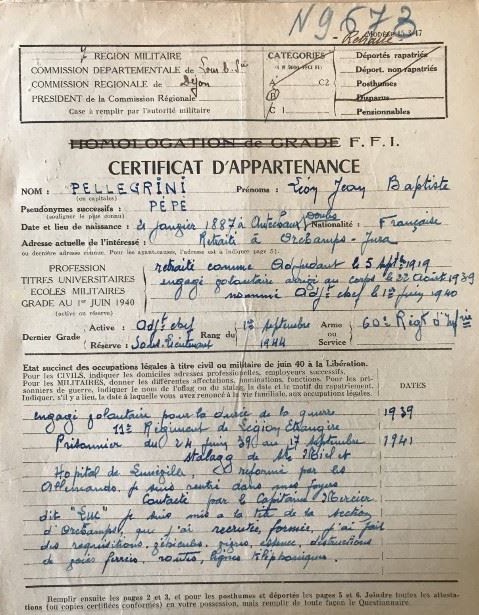 N 9673
- Retraité
MODÈLE 15-3-47
7 RÉGION MILITAIRE
COMMISSION DÉPARTEMENTALE de
COMMISSION RÉGIONALE de Dijon
PRÉSIDENT de la Commission Régionale
Case à remplir par l'autorité militaire
CATÉGORIES
A C2
B
C 1
Déportés rapatriés
Déport. non rapatriés
Posthumes
Disparus
Pensionnables
HOMOLOGATION de GRADE F. F. I.
CERTIFICAT D'APPARTENANCE
NOM : PELLEGRINI Prénoms : Léon Jean Baptiste
(en capitales)
Pseudonymes successifs : PÉPÉ
(souligner le plus connu)
Date et lieu de naissance : janvier 1887 à Doubs Nationalité : Française
Adresse actuelle de l'intéressé : Retraité à Orchamps - Jura
ou dernière adresse connue. Pour les
PROFESSION
TITRES UNIVERSITAIRES
ÉCOLES MILITAIRES
GRADE AU 1er JUIN 1940
(active ou réserve)
retraité comme Adjudant le 5 septbre 1919
engagé volontaire arrivé au corps le 22 Août 1939
nommé Adjt chef le 1er juin 1940
Dernier Grade
Active : Adjt chef
Réserve : Sous-Lieutenant
Rang du 1er septembre 1944
Arme ou Service 60e Régt d'Inf rie
État succinct des occupations légales à titre civil ou militaire de juin 40 à la Libération.
Pour les CIVILS, indiquer les domiciles adresses professionnelles, employeurs successifs.
Pour les MILITAIRES, donner les différentes affectations, nominations, fonctions. Pour les pri-
sonniers de guerre, indiquer le nom de l'oflag ou du stalag, la date et le motif du rapatriement.
Indiquer, s'il y a lieu, la date à laquelle vous avez renoncé à la vie familiale, aux occupations légales.
DATES
engagé volontaire pour la durée de la guerre 1939
11e Régiment de Légion Étrangère
Prisonnier du 24 juin 39 au 17 septembre 1941
Stalagg de St Mihiel et
Hopital de réformé par les
Allemands. je suis rentré dans mes foyers
Contacté par le Capitaine Mercier
dit "Luc" je suis mis à la tête de la section
d'Orchamps, que j'ai recrutée, formée, j'ai fait
des réquisitions, véhicules, essence, destructions
de voies ferrées, routes, lignes téléphoniques.
Remplir ensuite les pages 2 et 3, et pour les posthumes et déportés les pages 5 et 6. Joindre toutes les attesta-
tions (ou copies certifiées conformes) en votre possession, mais remplir de toute façon le Questionnaire.